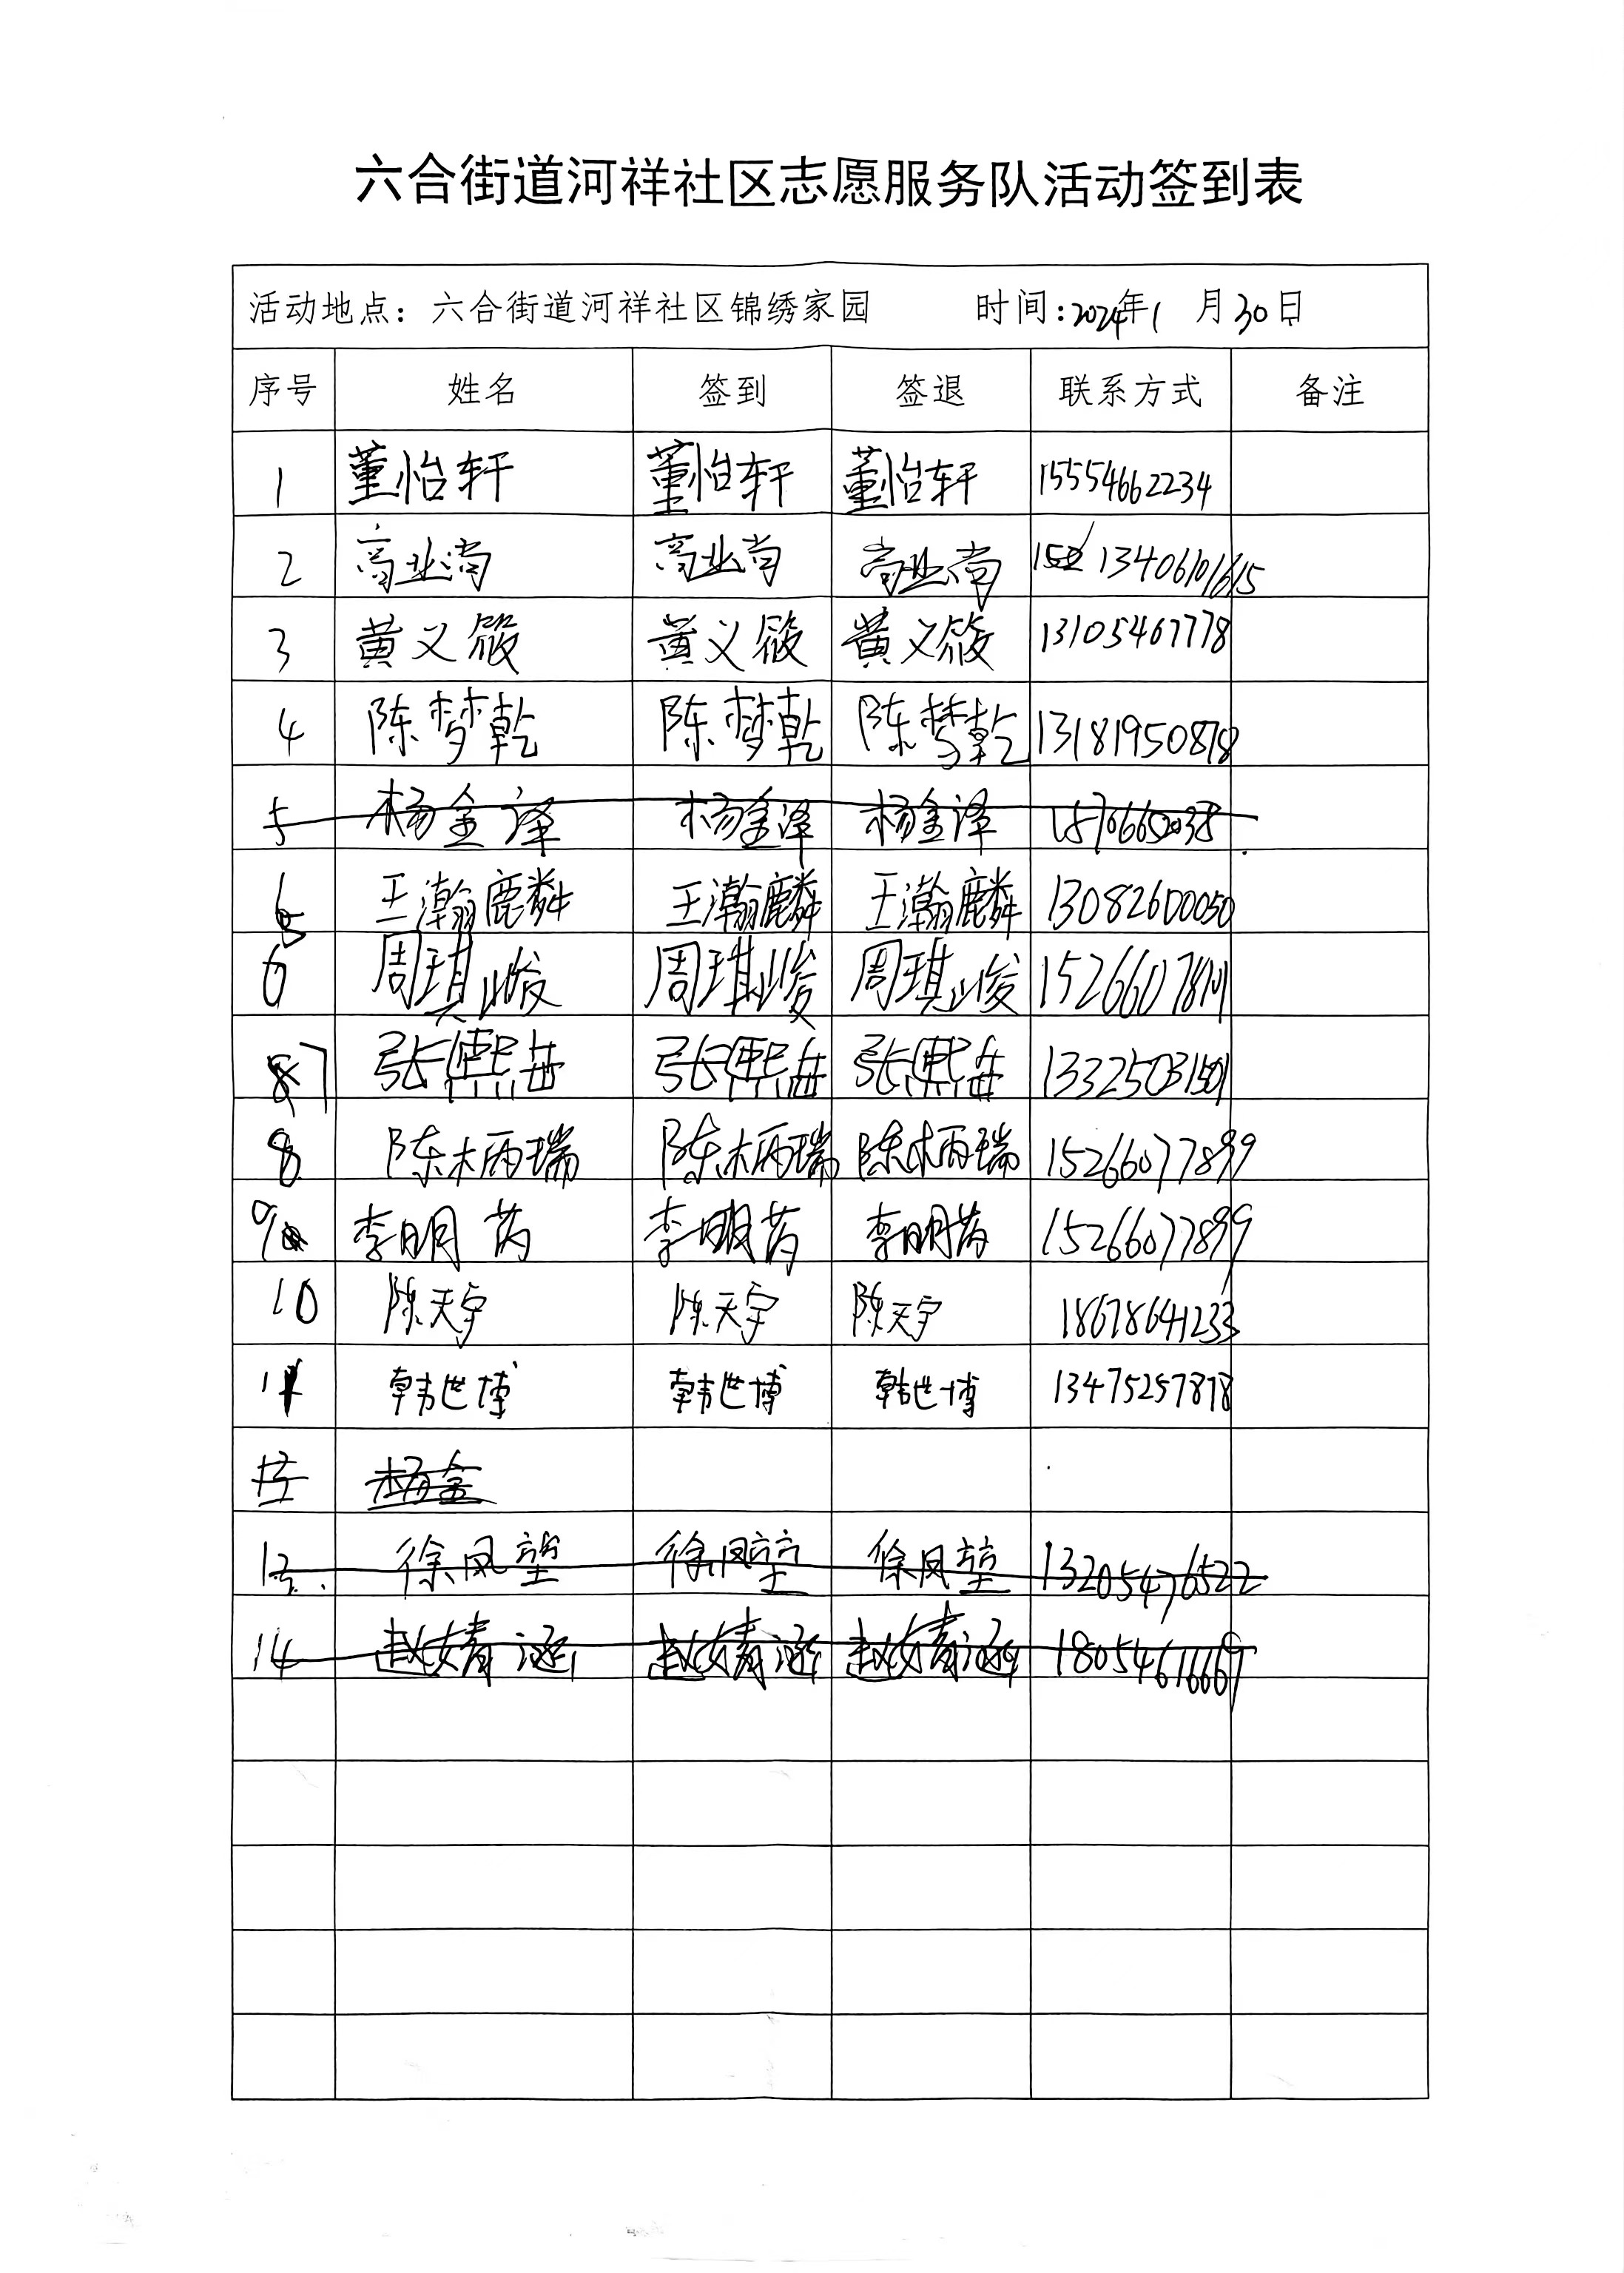 六合街道河祥社区志愿服务队活动签到表
活动地点：六合街道河祥社区锦绣家园 时间：2024年1月30日
序号 姓名 签到 签退 联系方式 备注
1 董怡轩 董怡轩 董怡轩 15554662234
2 高业尚 高业尚 高业尚 13406101615
3 黄义筱 黄义筱 黄义筱 13105467778
4 陈梦乾 陈梦乾 陈梦乾 13181950878
5 杨金泽 杨金泽 杨金泽
王瀚麟 王瀚麟 王瀚麟 13082600050
6 周琪峻 周琪峻 周琪峻
7 张熙 张熙 张熙 13325031501
8 陈柄瑞 陈柄瑞 陈柄瑞 15266077899
9 李明芮 李明芮 李明芮 15266077899
10 陈天宇 陈天宇 陈天宇 18678641233
11 韩世博 韩世博 韩世博 13475257878
杨金
13 徐凤堃 徐凤堃 徐凤堃 13205476522
14 赵婧涵 赵婧涵 赵婧涵